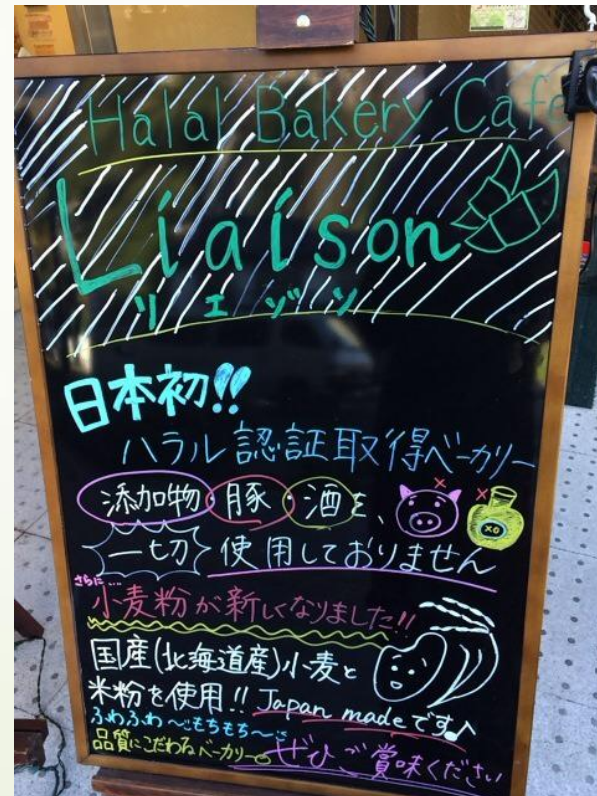 Halal Bakery Cafe
Liaison
リエゾン
日本初!!
ハラル認証取得ベーカリー
添加物・豚・酒を、
XO
一切使用しておりません
さらに…
小麦粉が新しくなりました!!
国産(北海道産)小麦と
米粉を使用!! Japan madeです♪
ふわふわ〜もちもち〜
品質にこだわるベーカリー
ぜひご賞味ください